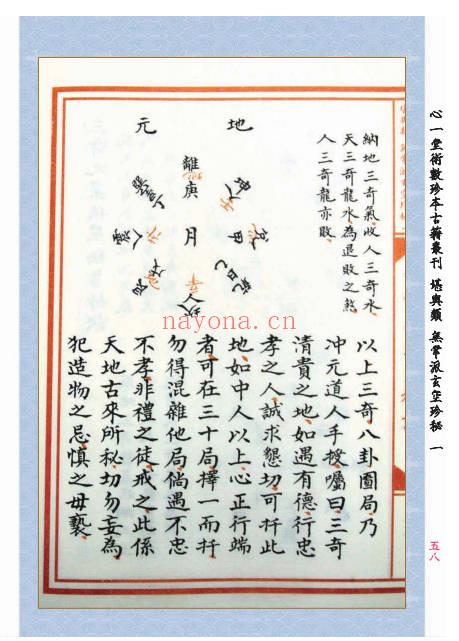 心一堂術數珍本古籍叢刊 堪輿類 無常派玄空珍秘 一
五八
納地三奇氣收人三奇水
天三奇龍水為退敗之煞
人三奇龍亦敗
地元
離
庚
月
甲
人
以上三奇八卦圖局乃
冲元道人手授囑曰三奇
清貴之地如遇有德行忠
孝之人誠求懇切可扦此
地如中人以上心正行端
者可在三十局擇一而扦
勿得混雜他局倘遇不忠
不孝非禮之徒戒之此係
天地古來所秘切勿妄為
犯造物之忌慎之毋褻
nayona.cn